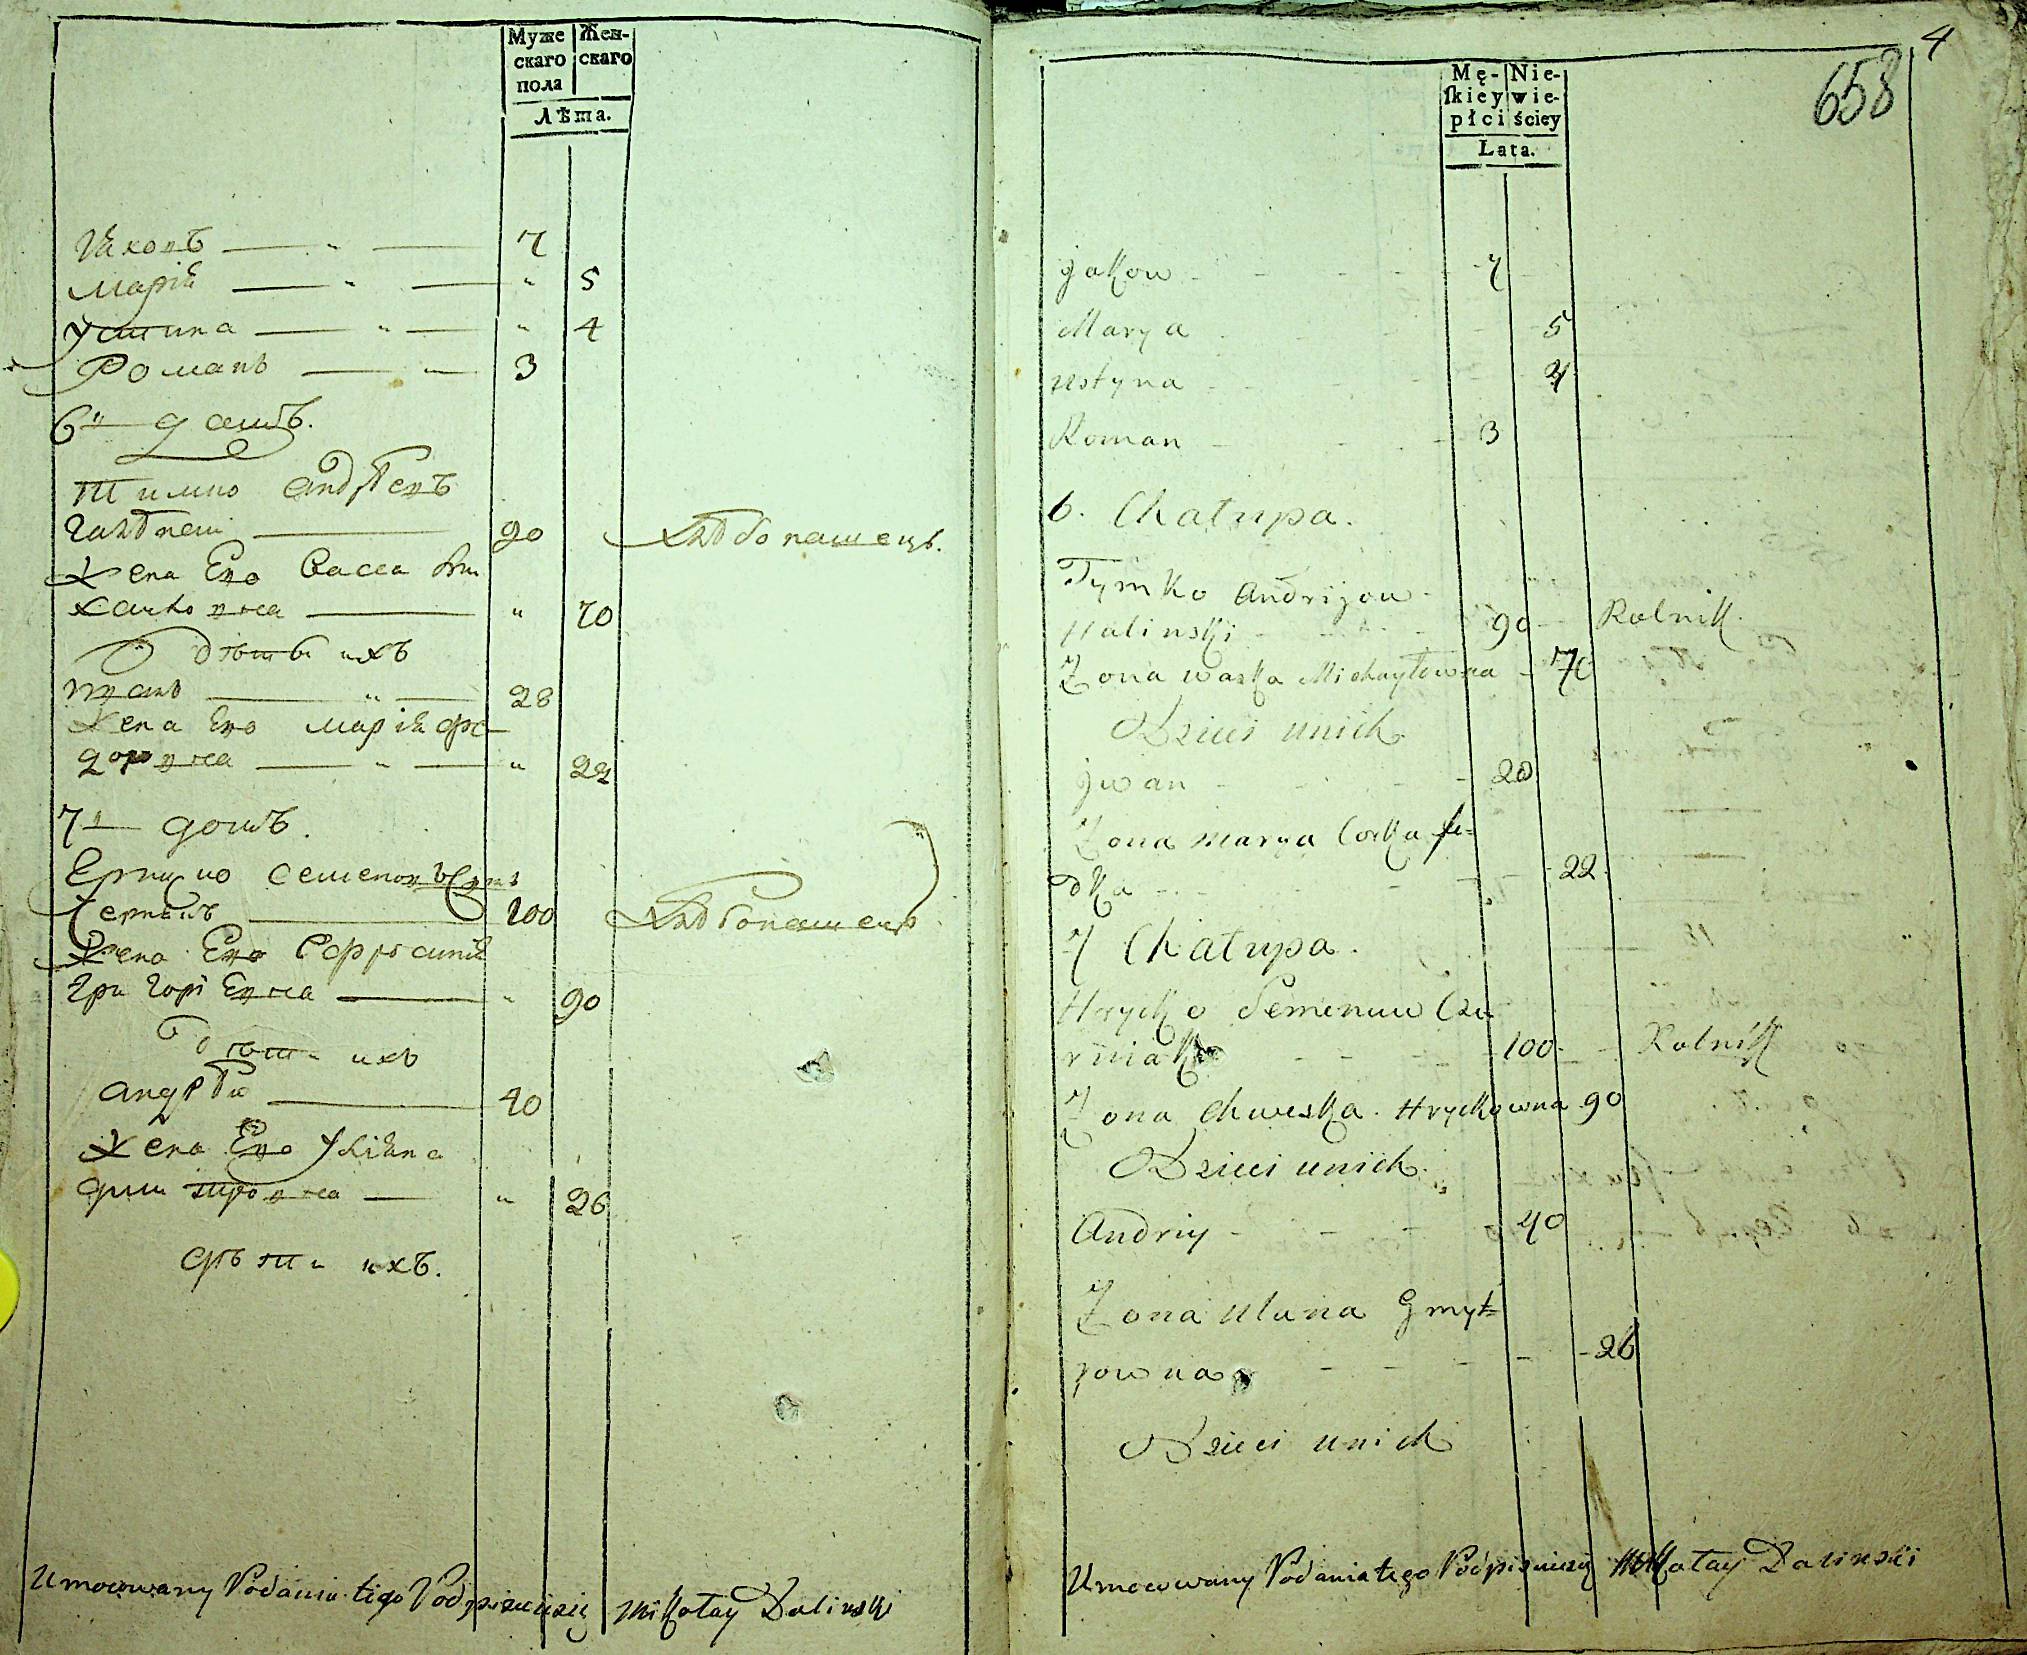 Муже Жен-
скаго скаго
пола
Лѣта.
Яковъ 7
Марія " 5
Устина " 4
Романъ 3
6й домъ.
Тимко Андрѣевъ
Галѣнскi 90 хлѣбопашецъ.
Жена Его Васса Ми
хайловна " 70
Дѣти ихъ
Иванъ 28
Жена Его Марія Фе-
доровна " 22
7й домъ.
Семеновъ Сынъ
100 хлѣбопашецъ
Жена Его Евфросинія
Григорiевна " 90
Дѣти ихъ
Андрѣй 40
Жена Его Улiяна
Дмитровна " 26
Дѣти ихъ.
Umocowany Podania tego Podpisuię się Mikołay Dalinski
4
658
Mę- Nie-
ſkiey wie-
płci ściey
Lata.
Jakow 7
Marya 5
Ustyna 4
Roman 3
6. Chałupa.
Tymko Andrijow
Halinski 90 Rolnik.
Zona Waska Michayłowna 70
Dzieci unich
Jwan 28
Zona Marya Corka Fe-
dka 22
7 Chałupa.
Hrycko Semenow Cze
rniak 100 Rolnik
Zona Chweska Hryckowna 90
Dzieci unich.
Andriy 40
Zona Ulana Dmyt-
rowna 26
Dzieci unich
Umocowany Podania tego Podpisuię się Mikołay Dalinski